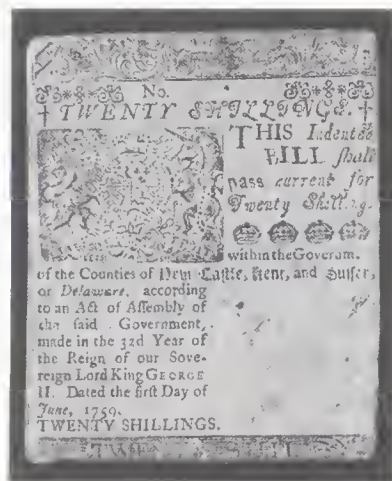 No.
TWENTY SHILLINGS.
THIS Indented
BILL ſhall
paſs current for
Twenty Shillings
within the Governm.
of the Counties of New-Caſtle, Kent, and Suſſex,
on Delaware, according
to an Act of Aſſembly of
the ſaid Government,
made in the 32d Year of
the Reign of our Sove-
reign Lord King GEORGE
II. Dated the firſt Day of
June, 1759.
TWENTY SHILLINGS.